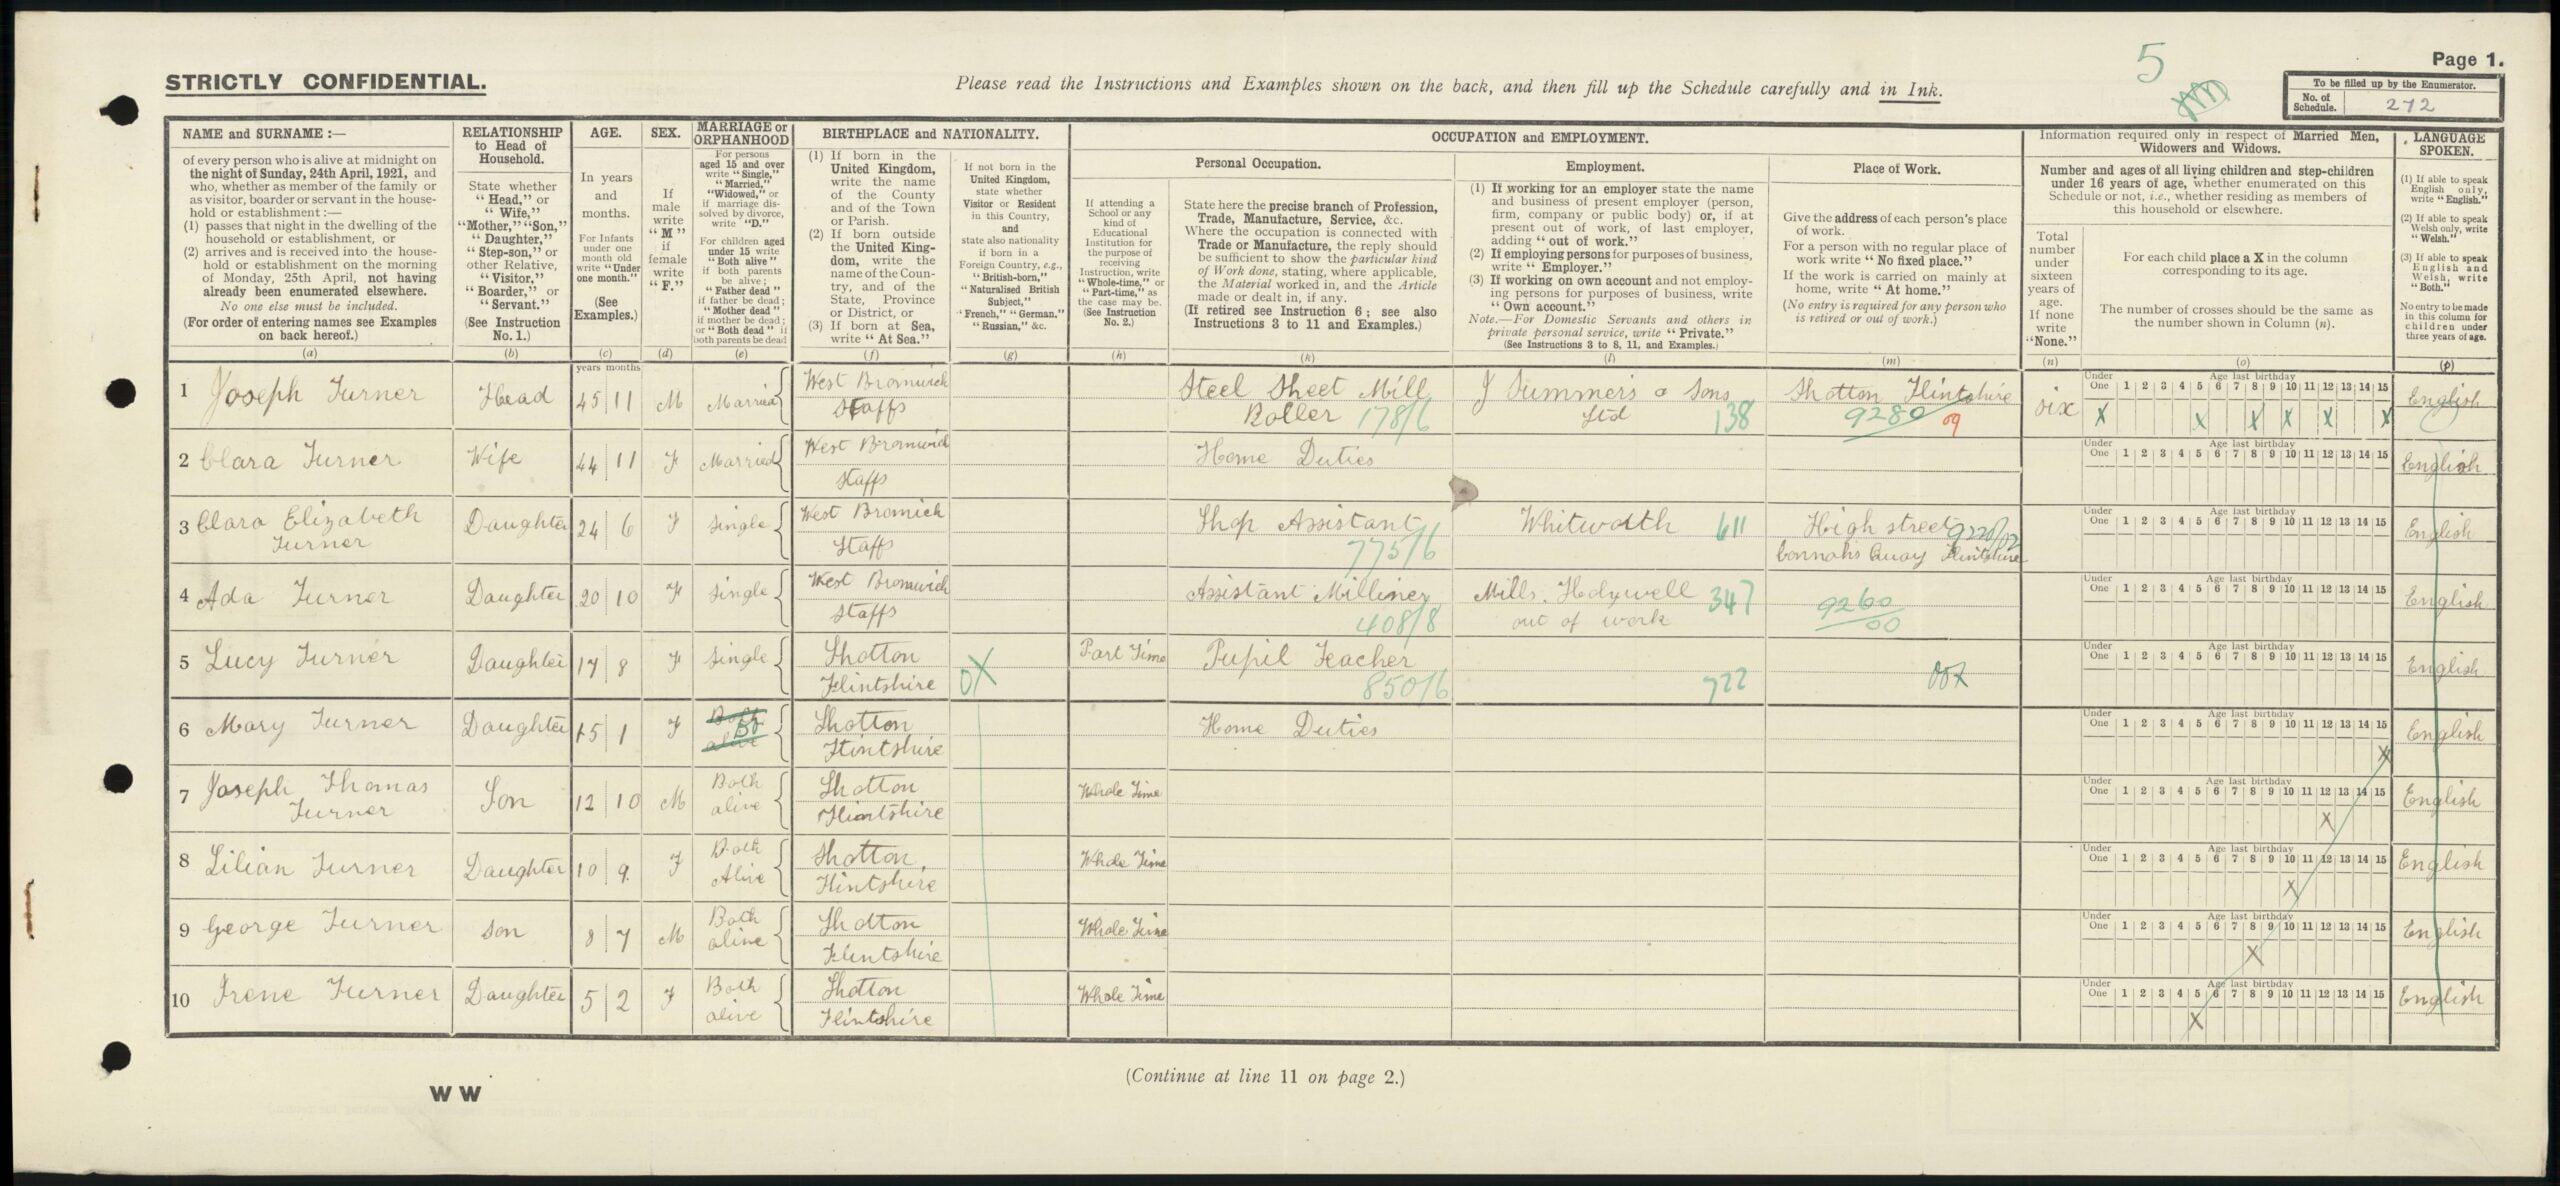 5
Page 1.
STRICTLY CONFIDENTIAL.
Please read the Instructions and Examples shown on the back, and then fill up the Schedule carefully and in Ink.
To be filled up by the Enumerator.
No. of Schedule. 272
NAME and SURNAME :—
of every person who is alive at midnight on
the night of Sunday, 24th April, 1921, and
who, whether as member of the family or
as visitor, boarder or servant in the house-
hold or establishment :—
(1) passes that night in the dwelling of the
household or establishment, or
(2) arrives and is received into the house-
hold or establishment on the morning
of Monday, 25th April, not having
already been enumerated elsewhere.
No one else must be included.
(For order of entering names see Examples
on back hereof.)
(a)
RELATIONSHIP
to Head of
Household.
State whether
"Head," or
"Wife,"
"Mother," "Son,"
"Daughter,"
"Step-son," or
other Relative,
"Visitor,"
"Boarder," or
"Servant."
(See Instruction
No. 1.)
(b)
AGE.
In years
and
months.
For Infants
under one
month old
write "Under
one month."
(See
Examples.)
(c)
years months
SEX.
If
male
write
"M"
if
female
write
"F."
(d)
MARRIAGE or
ORPHANHOOD
For persons
aged 15 and over
write "Single,"
"Married,"
"Widowed," or
if marriage dis-
solved by divorce,
write "D."
For children aged
under 15 write
"Both alive"
if both parents
be alive;
"Father dead"
if father be dead;
"Mother dead"
if mother be dead;
or "Both dead" if
both parents be dead
(e)
BIRTHPLACE and NATIONALITY.
(1) If born in the
United Kingdom,
write the name
of the County
and of the Town
or Parish.
(2) If born outside
the United King-
dom, write the
name of the Coun-
try, and of the
State, Province
or District, or
(3) If born at Sea,
write "At Sea."
(f)
If not born in the
United Kingdom,
state whether
Visitor or Resident
in this Country,
and
state also nationality
if born in a
Foreign Country, e.g.,
"British-born,"
"Naturalised British
Subject,"
"French," "German,"
"Russian," &c.
(g)
OCCUPATION and EMPLOYMENT.
If attending a
School or any
kind of
Educational
Institution for
the purpose of
receiving
Instruction, write
"Whole-time," or
"Part-time," as
the case may be.
(See Instruction
No. 2.)
(h)
Personal Occupation.
State here the precise branch of Profession,
Trade, Manufacture, Service, &c.
Where the occupation is connected with
Trade or Manufacture, the reply should
be sufficient to show the particular kind
of Work done, stating, where applicable,
the Material worked in, and the Article
made or dealt in, if any.
(If retired see Instruction 6; see also
Instructions 3 to 11 and Examples.)
(k)
Employment.
(1) If working for an employer state the name
and business of present employer (person,
firm, company or public body) or, if at
present out of work, of last employer,
adding "out of work."
(2) If employing persons for purposes of business,
write "Employer."
(3) If working on own account and not employ-
ing persons for purposes of business, write
"Own account."
Note.—For Domestic Servants and others in
private personal service, write "Private."
(See Instructions 3 to 8, 11, and Examples.)
(l)
Place of Work.
Give the address of each person's place
of work.
For a person with no regular place of
work write "No fixed place."
If the work is carried on mainly at
home, write "At home."
(No entry is required for any person who
is retired or out of work.)
(m)
Information required only in respect of Married Men,
Widowers and Widows.
Number and ages of all living children and step-children
under 16 years of age, whether enumerated on this
Schedule or not, i.e., whether residing as members of
this household or elsewhere.
Total
number
under
sixteen
years of
age.
If none
write
"None."
(n)
For each child place a X in the column
corresponding to its age.
The number of crosses should be the same as
the number shown in Column (n).
(o)
LANGUAGE
SPOKEN.
(1) If able to speak
English only,
write "English."
(2) If able to speak
Welsh only, write
"Welsh."
(3) If able to speak
English and
Welsh, write
"Both."
No entry to be made
in this column for
children under
three years of age.
(p)
1 Joseph Turner Head 45 11 M Married West Bromwich Staffs Steel Sheet Mill Roller 178/6 J Summers & Sons Ltd 138 Shotton Flintshire 9280 09 six English
Under One Age last birthday 1 2 3 4 5 6 7 8 9 10 11 12 13 14 15
X X X X X X
2 Clara Turner Wife 44 11 F Married West Bromwich Staffs Home Duties English
Under One Age last birthday 1 2 3 4 5 6 7 8 9 10 11 12 13 14 15
3 Clara Elizabeth Turner Daughter 24 6 F Single West Bromich Staffs Shop Assistant 775/6 Whitworth 611 High street Connahs Quay Flintshire English
Under One Age last birthday 1 2 3 4 5 6 7 8 9 10 11 12 13 14 15
4 Ada Turner Daughter 20 10 F Single West Bromwich Staffs Assistant Milliner 408/8 Mills. Holywell out of work 347 9260 00 English
Under One Age last birthday 1 2 3 4 5 6 7 8 9 10 11 12 13 14 15
5 Lucy Turner Daughter 17 8 F Single Shotton Flintshire 0X Part Time Pupil Teacher 850/6 722 English
Under One Age last birthday 1 2 3 4 5 6 7 8 9 10 11 12 13 14 15
6 Mary Turner Daughter 15 1 F Both alive Shotton Flintshire Home Duties X English
Under One Age last birthday 1 2 3 4 5 6 7 8 9 10 11 12 13 14 15
7 Joseph Thomas Turner Son 12 10 M Both alive Shotton Flintshire Whole Time X English
Under One Age last birthday 1 2 3 4 5 6 7 8 9 10 11 12 13 14 15
8 Lilian Turner Daughter 10 9 F Both Alive Shotton Flintshire Whole Time X English
Under One Age last birthday 1 2 3 4 5 6 7 8 9 10 11 12 13 14 15
9 George Turner Son 8 7 M Both alive Shotton Flintshire Whole Time X English
Under One Age last birthday 1 2 3 4 5 6 7 8 9 10 11 12 13 14 15
10 Irene Turner Daughter 5 2 F Both alive Shotton Flintshire Whole Time X English
Under One Age last birthday 1 2 3 4 5 6 7 8 9 10 11 12 13 14 15
(Continue at line 11 on page 2.)
W W